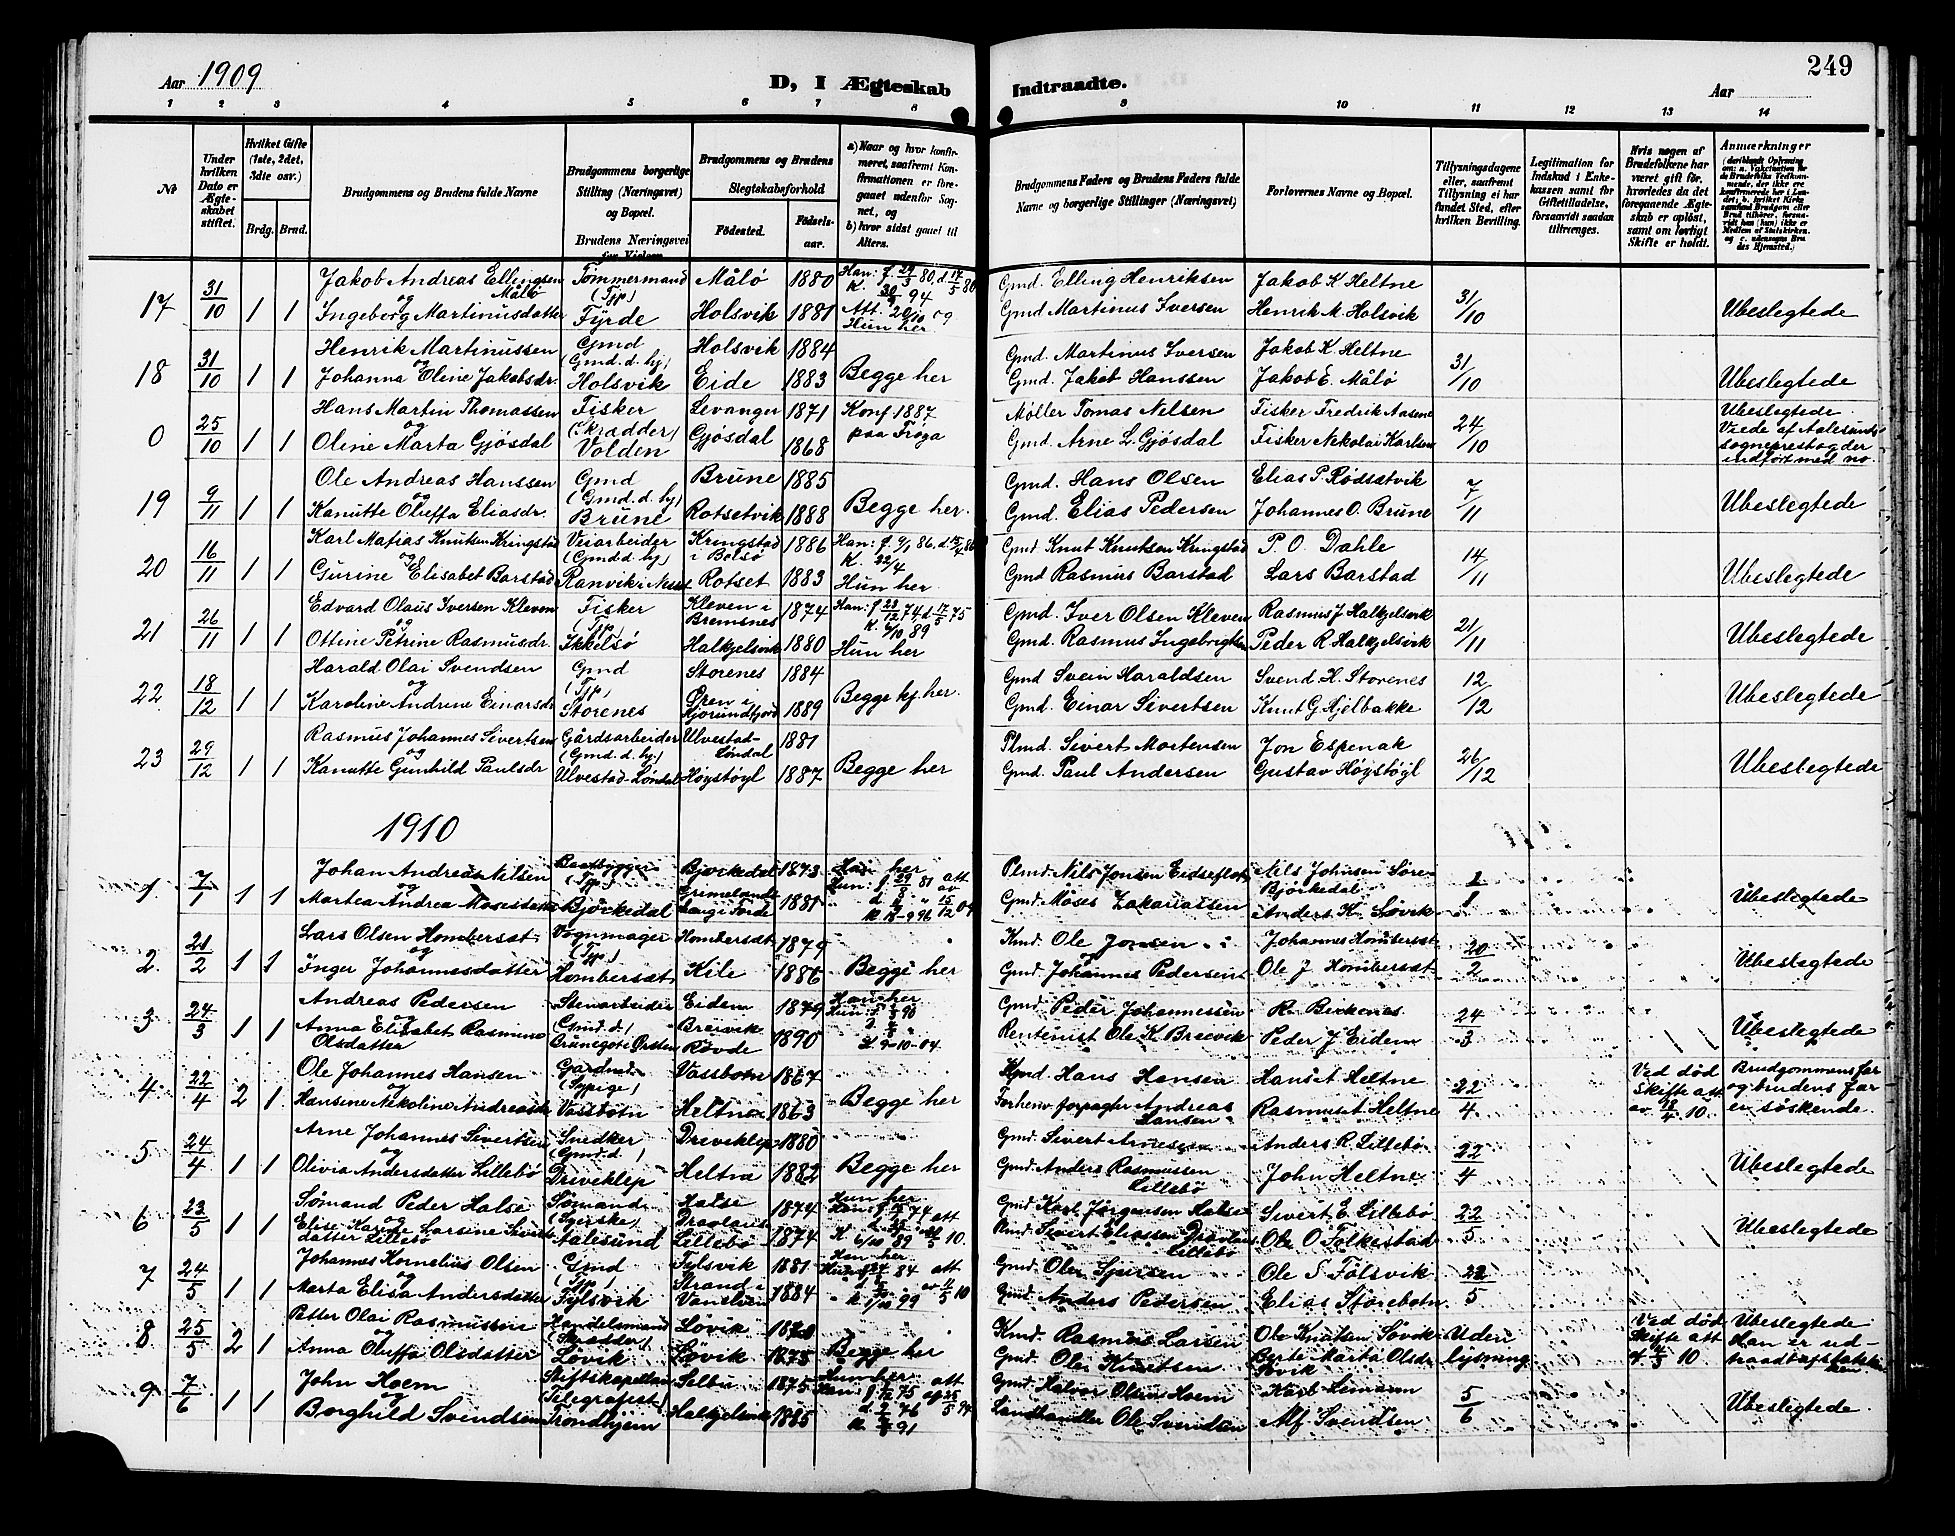 Aar 1909
D, I Ægteskab
Indtraadte.
249
Aar
1 2 3 4 5 6 7 8 9 10 11 12 13 14
No
Under hvilken Dato er Ægteskabet stiftet.
Hvilket Gifte (1ste, 2det, 3die osv.)
Brdg. Brud.
Brudgommens og Brudens fulde Navne
Brudgommens borgerlige Stilling (Næringsvei) og Bopæl.
Brudens Næringsvei før Vielsen
Brudgommens og Brudens Slegtskabsforhold
Fødested. Fødselsaar.
a) Naar og hvor konfirmeret, saafremt Konfirmationen er foregaaet udenfor Sognet, og b) hvor sidst gaaet til Alters.
Brudgommens Faders og Brudens Faders fulde Navne og borgerlige Stillinger (Næringsvei)
Forlovernes Navne og Bopæl.
Tillysningsdagene eller, saafremt Tillysning ei har fundet Sted, efter hvilken Bevilling.
Legitimation for Indskud i Enkekassen samt for Giftetilladelse, forsaavidt saadan tiltrænges.
Hvis nogen af Brudefolkene har været gift før, hvorledes da det foregaaende Ægteskab er opløst, samt om lovligt Skifte er holdt.
Anmærkninger
17 31/10 1 1 Jakob Andreas Ellingsen Målø Tømmermand Målø 1880 Han: f. 29/3 80, d. 17/5 80 Gmd. Elling Henriksen Jakob K Heltne 31/10 Ubeslegtede
og Ingeborg Martinusdatter (Tjp) Fyrde Holsvik 1881 Att. 20/10 og Hun her Gmd Martinus Iversen Henrik M. Holsvik
18 31/10 1 1 Henrik Martinussen Gmd Holsvik 1884 Begge her Gmd. Martinus Iversen Jakob K. Heltne 31/10 Ubeslegtede
og Johanna Oline Jakobsdr. (Gmd. d. hj) Holsvik Eide 1883 Gmd. Jakob Hanssen Jakob E. Målø
0 25/10 1 1 Hans Martin Thomassen Fisker Levanger 1871 Konf 1887 paa Frøya Møller Tomas Nelsen Fisker Fredrik Aasene 24/10 Ubeslegtede
og Oline Marta Gjøsdal (Skrædder) Volden Gjøsdal 1868 Gmd. Arne L. Gjøsdal Fisker Nikolai Karlsen Viede af Aalesunds sogneprest og der indført med no.
19 9/11 1 1 Ole Andreas Hanssen Gmd Brune 1885 Begge her. Gmd. Hans Olsen Elias P. Rødsætvik 7/11 Ubeslegtede
og Kanutte Oluffa Eliasdr. (Gmd. d. hj) Brune Rotsetvik 1888 Gmd. Elias Pedersen Johannes O. Brune
20 16/11 1 1 Karl Matias Knutsen Kringstad Veiarbeider Kringstad i Bolsø 1886 Han: f. 9/1 86, K. 22/4 Gmd Knut Knutsen Kringstad P. O. Dahle 14/11 Ubeslegtede
og Gurine Elisabet Barstad (Gmd. d. hj) Ranvik i Nesset Rotset 1883 Hun her Gmd Rasmus Barstad Lars Barstad
21 26/11 1 1 Edvard Olaus Iversen Kleven Fisker Kleven i Bremsnes 1874 Han: f 23/12 74 d. 17/5 75 K. 6/10 89 Gmd. Iver Olsen Kleven Rasmus J Halkjelsvik 21/11 Ubeslegtede
og Ottine Petrine Rasmusdr. (Tjp) Ikkelsø Halkjelsvik 1880 Hun her Gmd. Rasmus Ingebrigtsen Peder R. Halkjelsvik
22 18/12 1 1 Harald Olai Svendsen Gmd Storenes 1884 Begge kj. her. Gmd Svein Haraldsen Svend H. Storenes 12/12 Ubeslegtede
og Karoline Andrine Einarsdr (Tjp) Storenes Øren i Hjørundfjord 1889 Gmd. Einar Sivertsen Knut G. Hjelbakke
23 29/12 1 1 Rasmus Johannes Sivertsen Gårdsarbeider Ulvestad-Løndal 1881 Begge her Plmd. Sivert Mortensen Jon Espenak 26/12 Ubeslegtede
og Kanutte Gunhild Paulsdr (Gmd. d. hj.) Ulvestad-Løndal Høystøyl 1887 Gmd. Paul Andersen Gustav Høystøyl
1910
1 7/1 1 1 Johan Andreas Nilsen Baatbygger Bjørkedal 1873 Han her Plmd. Nils Jonsen Eidseflot Nils Johnsen Søre-Bjørkedal Ubeslegtede
og Martea Andrea Mosesdatter (Tp.) Bjørkedal 1881 Hun: f 29/8 81 Gmd. Moses Zakariassen Anders K. Løvik
2 21/2 1 1 Lars Olsen Hombersæt Vognmager Hombersæt 1879 Begge her Kmd. Ole Jonsen Johannes Hombersæt 20/2 Ubeslegtede
og Inger Johannesdatter (Tp) Hombersæt Kile 1886 Gmd. Johannes Pedersen Ole J Hombersæt
3 24/3 1 1 Andreas Pedersen Stenarbeider Eidem 1879 Han her Gmd. Peder Johannessen R. Birkenes 24/3 Ubeslegtede
og Anna Elisabet Rasmine Olsdatter (Gmd. d.) Brunegot i Ørsten Breivik Røvde 1890 K. 9-10-04 Rentenist Ole K Breivik Peder J Eidem
4 22/4 2 1 Ole Johannes Hansen Gårdmd. Vassbotn 1867 Begge her Kmd Hans Hansen Hans Heltne 22/4 Ved død Skifte att av 18/4 10. Brudgommens far og brudens far er søskende.
og Hansine Nikoline Andreasdr (Sypige) Vassbotn Heltne 1863 Forhenv. forpagter Andreas Larsen Rasmus Heltne
5 24/4 1 1 Arne Johannes Sivertsen Snedker Driveklep 1880 Begge her Gmd. Sivert Arnesen Anders R. Lillebø 22/4 Ubeslegtede
og Olivia Andersdatter Lillebø (Gmd. d.) Driveklep Heltne 1882 Gmd. Anders Rasmussen Lillebø John Heltne
6 23/5 1 1 Sømand Peder Halse Sømand Halse 1874 Hun her Gmd Karl Jørgensen Halse Sivert E. Lillebø 22/5 Ubeslegtede
og Elise Karine Larsine Sivertsdatter Lillebø Aalesund Lillebø 1874 K 6/10 89 Sivert Eliassen Lillebø Ole O Folkestad
7 24/5 1 1 Johannes Kornelius Olsen Gmd Fylsvik 1881 Han her Gmd. Ole Sjursen Ole S Følsvik 22/5 Ubeslegtede
og Marta Elisa Andersdatter (Tjp) Fylsvik Strand i Vanelven 1884 K. 1/10 99 Gmd. Anders Pedersen Elias Storebotn
8 25/5 2 1 Petter Olai Rasmussen Handelsmand Løvik Begge her Kmd. Rasmus Larsen Ole Knutsen Løvik Uden lysning Ved død Skifte att 10 Ubeslegtede Han er udtraadt af statskirken
og Anna Oluffa Olsdatter (Skrædder) Løvik Løvik 1875 Gmd. Ole Knutsen Berte Marta Olsdr Løvik
9 7/6 1 1 John Hoem Stiftskapellan Selbu 1875 Hun her Gmd. Halvor Olsen Hoem 5/6 Ubeslegtede
og Borghild Svendsen (Telegrafist) Trondhjem Halkjelsvik 1885 Landhandler Ole Svendsen Alf Svendsen